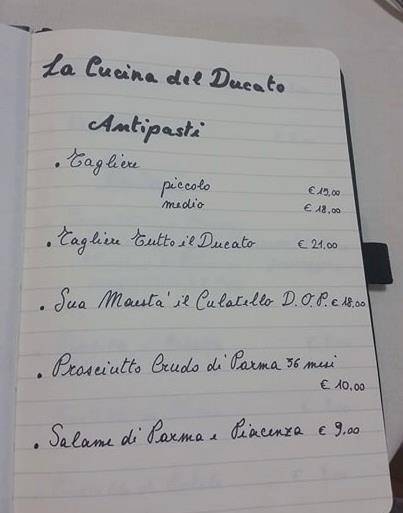 La Cucina del Ducato
Antipasti
• Tagliere
piccolo € 15,00
medio € 18,00
• Tagliere Tutto il Ducato € 21,00
• Sua Maestà il Culatello D.O.P. € 18,00
• Prosciutto Crudo di Parma 36 mesi
€ 10,00
• Salame di Parma e Piacenza € 9,00